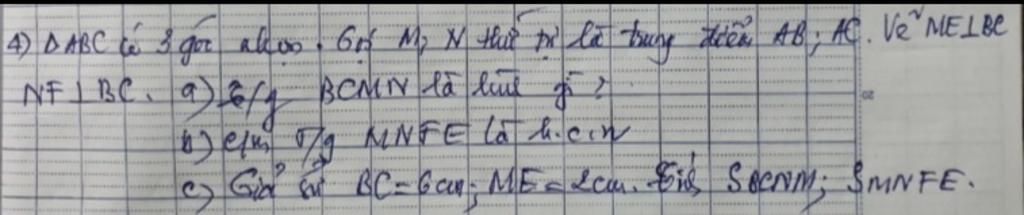 4) ΔABC có 3 góc nhọn. Gọi M, N thứ tự là trung điểm AB; AC. Vẽ ME⊥BC
NF⊥BC. a) T/g BCMN là hình gì?
b) c/m T/g MNFE là h.c.n
c) Giả sử BC=6cm; ME=2cm. Tính SBCNM; SMNFE.